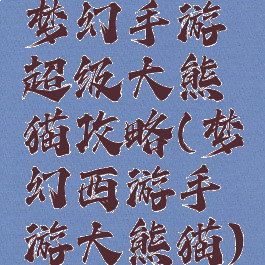 梦幻手游
超级大熊
猫攻略(梦
幻西游手
游大熊猫)